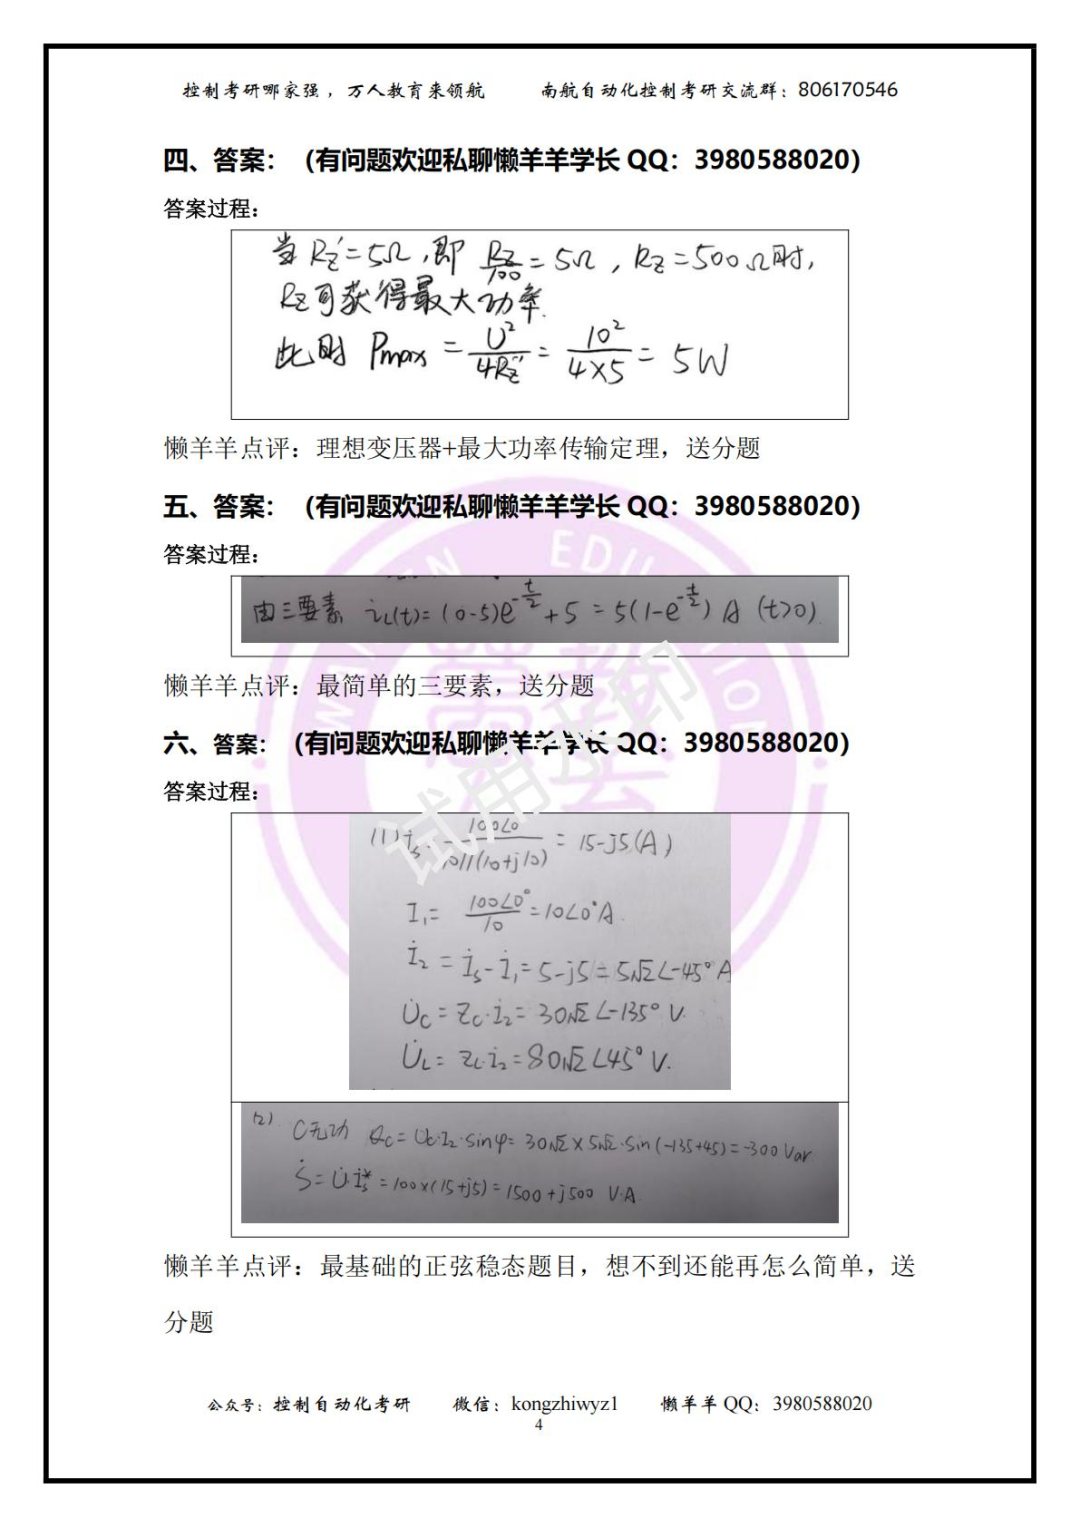 控制考研哪家强，万人教育来领航 南航自动化控制考研交流群：806170546
四、答案：（有问题欢迎私聊懒羊羊学长 QQ：3980588020）
答案过程：
当 Rz'=5Ω，即 Rz/100=5Ω，Rz=500Ω时，
Rz可获得最大功率.
此时 Pmax = U²/4Rz' = 10²/4×5 = 5W
懒羊羊点评：理想变压器+最大功率传输定理，送分题
五、答案：（有问题欢迎私聊懒羊羊学长 QQ：3980588020）
答案过程：
由三要素 iL(t)=(0-5)e^(-t/2)+5=5(1-e^(-t/2)) A (t>0).
懒羊羊点评：最简单的三要素，送分题
六、答案：（有问题欢迎私聊懒羊羊学长 QQ：3980588020）
答案过程：
(1) İs = 100∠0/10//(10+j10) = 15-j5(A)
I₁= 100∠0°/10 =10∠0°A.
İ₂ = İs-İ₁=5-j5=5√2∠-45°A
U̇c = Zc·İ₂= 30√2∠-135° V.
U̇L= ZL·İ₂=80√2∠45° V.
(2). C无功 Qc= Uc·I₂·sinφ= 30√2×5√2·sin(-135+45)=-300 Var
Ṡ=U̇·İs*=100×(15+j5)=1500+j500 V·A.
懒羊羊点评：最基础的正弦稳态题目，想不到还能再怎么简单，送
分题
公众号：控制自动化考研 微信：kongzhiwyz1 懒羊羊 QQ：3980588020
4
试用水印